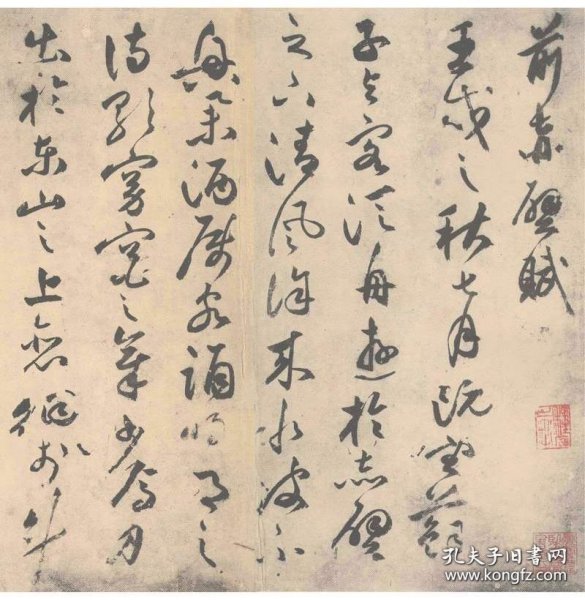 前赤壁賦
壬戌之秋七月既望蘇
子与客泛舟遊於赤壁
之下清風徐来水波不
興举酒属客誦明月之
诗歌窈窕之章少焉月
出於东山之上徘徊於斗
孔夫子旧书网
www.kongfz.com